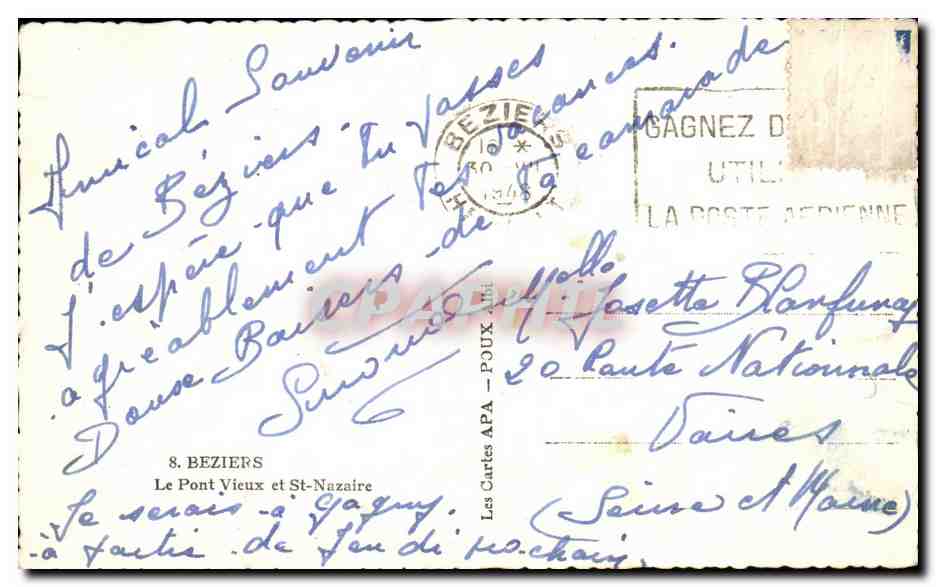 Amical Souvenir
de Béziers.
J'espère que tu passes
agréablement tes vacances.
Douse Baisers de ta camarade
8. BEZIERS
Le Pont Vieux et St-Nazaire
Je serais à Gagny.
à partir de Jeudi prochain.
Les Cartes APA — POUX Albi
BEZIERS
16 *
30
GAGNEZ D
UTIL
LA POSTE AERIENNE
CPAPHIL
Melle Josette
20 Route Nationnale
Vaires
(Seine et Marne)